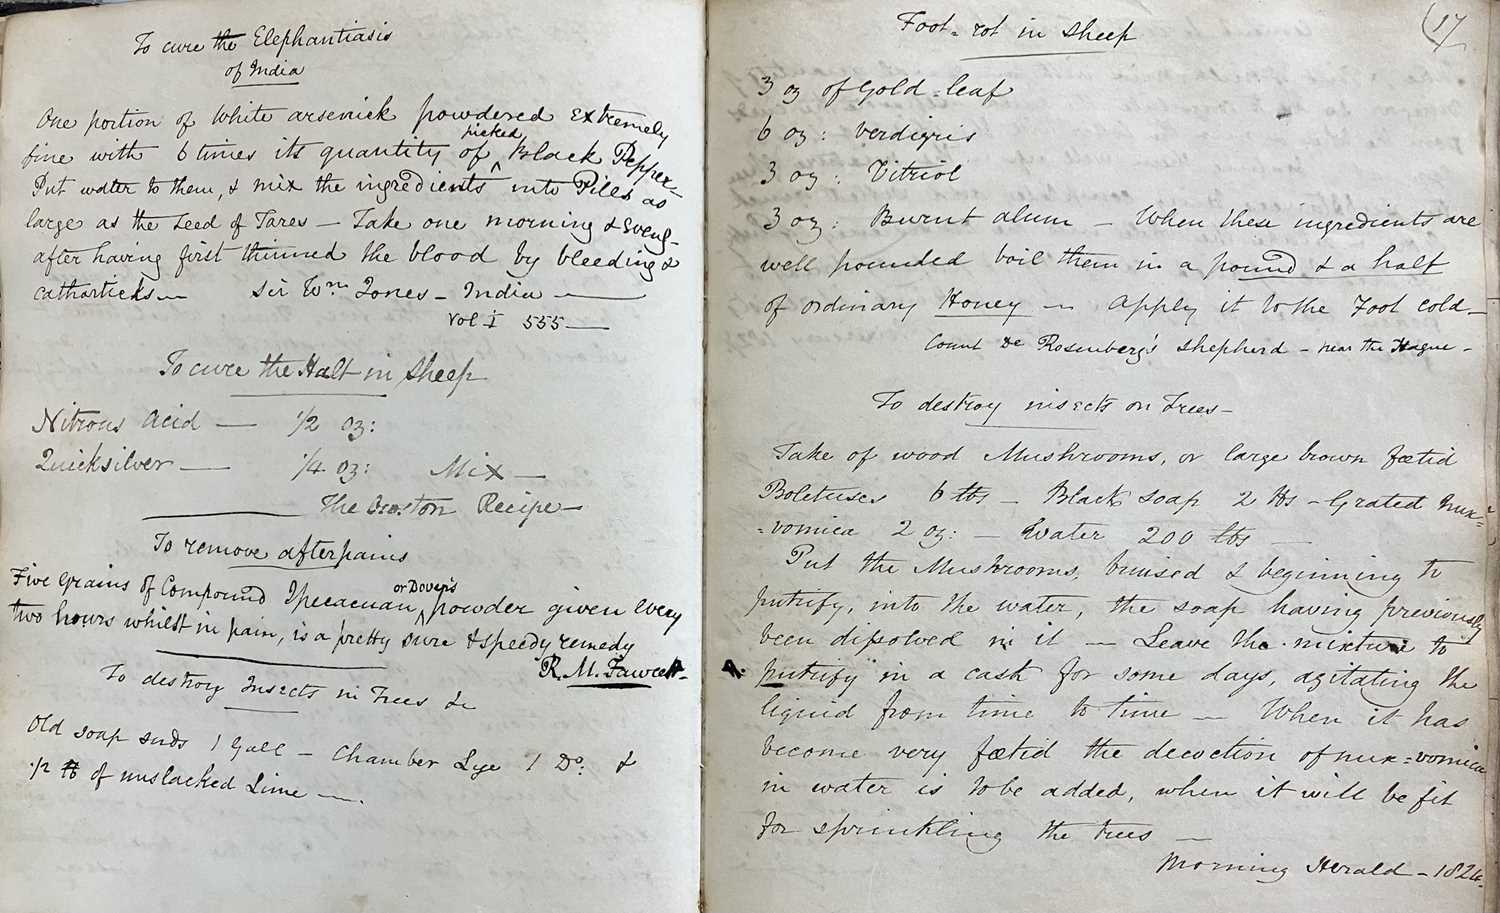 To cure the Elephantiasis
of India
One portion of White arsenick powdered extremely
fine with 6 times its quantity of picked Black Pepper –
Put water to them, & mix the ingredients into Pills as
large as the seed of Tares – Take one morning & Eveng –
after having first thinned the blood by bleeding &
catharticks – Sir Wm Jones – India –
Vol I 555 –
To cure the Halt in Sheep
Nitrous Acid – 1/2 oz:
Quicksilver – 1/4 oz: Mix –
The Recipe –
To remove afterpains
Five Grains of Compound Ipecacuan, or Dover's powder given every
two hours whilst in pain, is a pretty sure & speedy remedy
R. M. Fawcett –
To destroy Insects in Trees &c
Old soap suds 1 Gall – Chamber Lye 1 Do: &
1/2 ℔ of unslacked Lime –.
17
Foot-rot in Sheep
3 oz of Gold-leaf
6 oz: Verdigris
3 oz: Vitriol
3 oz: Burnt alum – When these ingredients are
well pounded boil them in a pound & a half
of ordinary Honey – Apply it to the Foot cold –
Count De Rosenberg's shepherd – near the Hague –
To destroy insects on Trees –
Take of wood Mushrooms, or large brown fœtid
Boletuses 6 lbs – Black soap 2 lbs – Grated nux-
-vomica 2 oz: – Water 200 lbs –
Put the Mushrooms, bruised & beginning to
putrify, into the water, the soap having previously
been dissolved in it – Leave the mixture to
putrify in a cask for some days, agitating the
liquid from time to time – When it has
become very fœtid the decoction of nux-vomica
in water is to be added, when it will be fit
for sprinkling the trees –
Morning Herald – 1824.